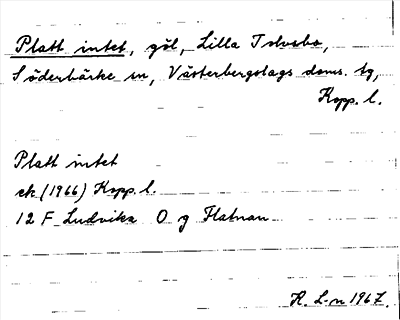 Platt intet, göl, Lilla Tolvsbo,
Söderbärke sn, Västerbergslags doms. tg,
Kopp. l.
Platt intet
ek (1966) Kopp. l.
12 F Ludvika O g Flatnan
H. L-n 1967.